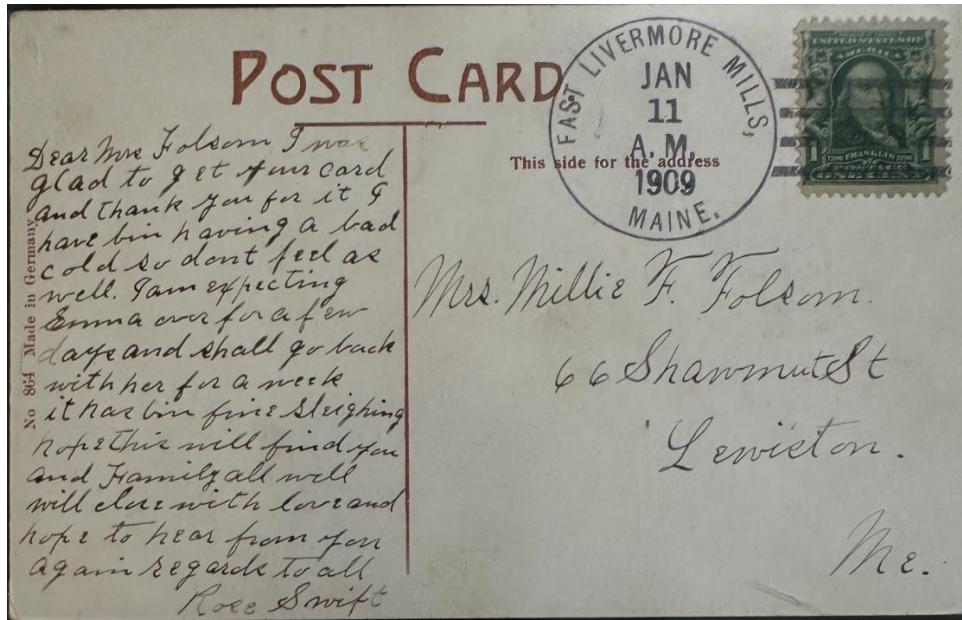 POST CARD
This side for the address
EAST LIVERMORE MILLS,
JAN
11
A.M.
1909
MAINE.
UNITED STATES OF
AMERICA
1706 FRANKLIN 1790
1 1
ONE CENT
No 864 Made in Germany
Dear Mrs Folsom I was
glad to get your card
and thank you for it I
have bin having a bad
cold so dont feel as
well. I am expecting
Emma over for a few
days and shall go back
with her for a week
it has bin fine sleighing
hope this will find you
and Family all well
will close with love and
hope to hear from you
again regards to all
Rose Swift
Mrs. Millie F. Folsom.
66 Shawmut St
Lewiston.
Me.